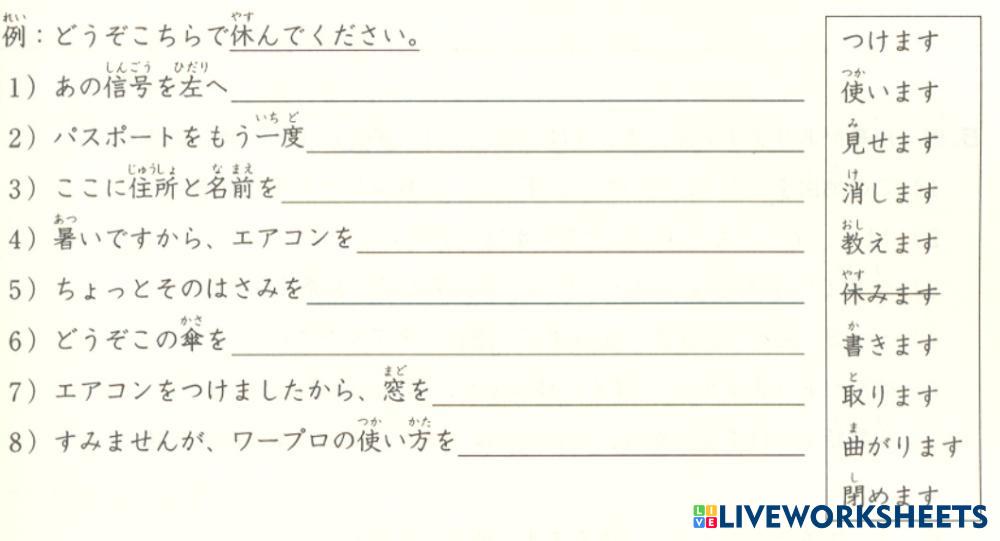 例：どうぞこちらで休んでください。
1）あの信号を左へ
2）パスポートをもう一度
3）ここに住所と名前を
4）暑いですから、エアコンを
5）ちょっとそのはさみを
6）どうぞこの傘を
7）エアコンをつけましたから、窓を
8）すみませんが、ワープロの使い方を
つけます
使います
見せます
消します
教えます
休みます
書きます
取ります
曲がります
閉めます
LIVEWORKSHEETS